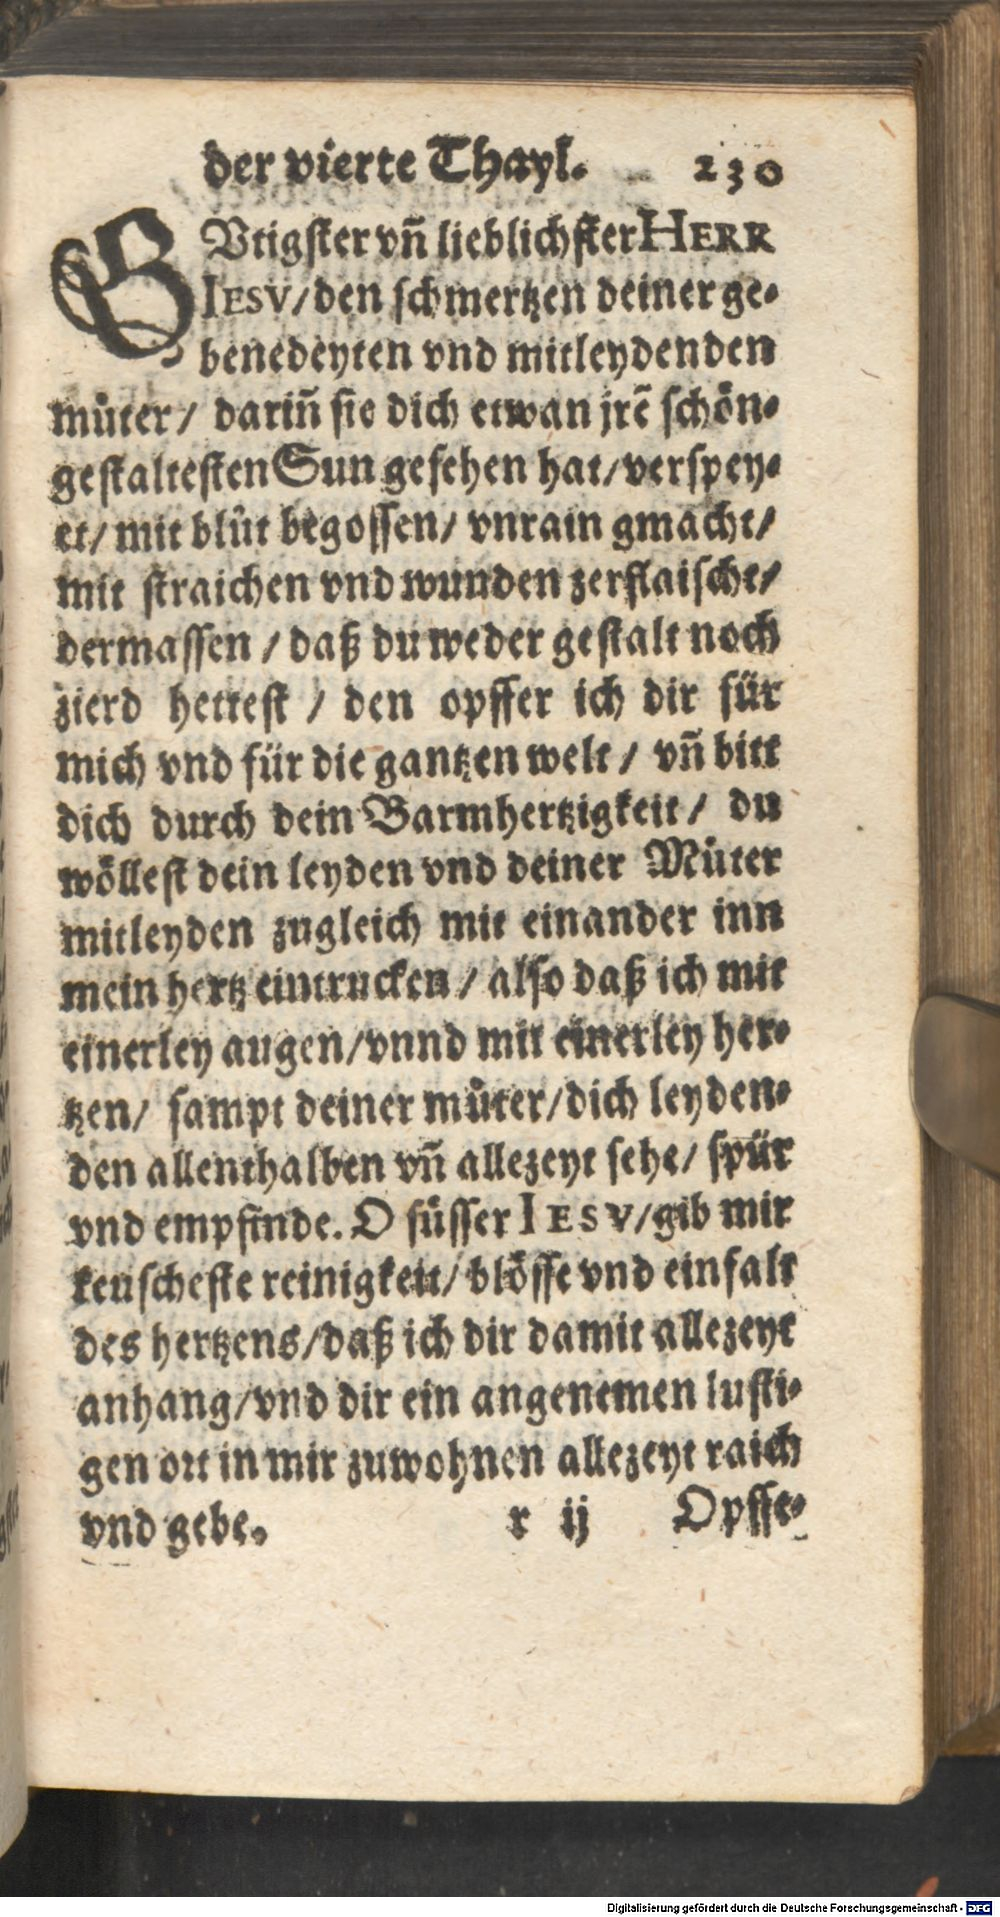 der vierte Thayl. 230
GVtigster vñ lieblichster HERR
IESV/ den schmertzen deiner ge-
benedeyten vnd mitleydenden
můter/ dariñ sie dich etwan jrẽ schön-
gestaltesten Sun gesehen hat/ verspey-
et/ mit blůt begossen/ vnrain gmacht/
mit straichen vnd wunden zerflaischt/
dermassen / daß du weder gestalt noch
zierd hettest / den opffer ich dir für
mich vnd für die gantzen welt / vñ bitt
dich durch dein Barmhertzigkeit/ du
wöllest dein leyden vnd deiner Můter
mitleyden zugleich mit einander inn
mein hertz eintrucken / also daß ich mit
einerley augen/ vnnd mit einerley her-
tzen/ sampt deiner můter/ dich leyden-
den allenthalben vñ allezeyt sehe/ spür
vnd empfinde. O süsser IESV/ gib mir
keuscheste reinigkeit/ blösse vnd einfalt
des hertzens/ daß ich dir damit allezeyt
anhang/ vnd dir ein angenemen lusti-
gen ort in mir zuwohnen allezeyt raich
vnd gebe. x ij Opffe-
Digitalisierung gefördert durch die Deutsche Forschungsgemeinschaft - DFG